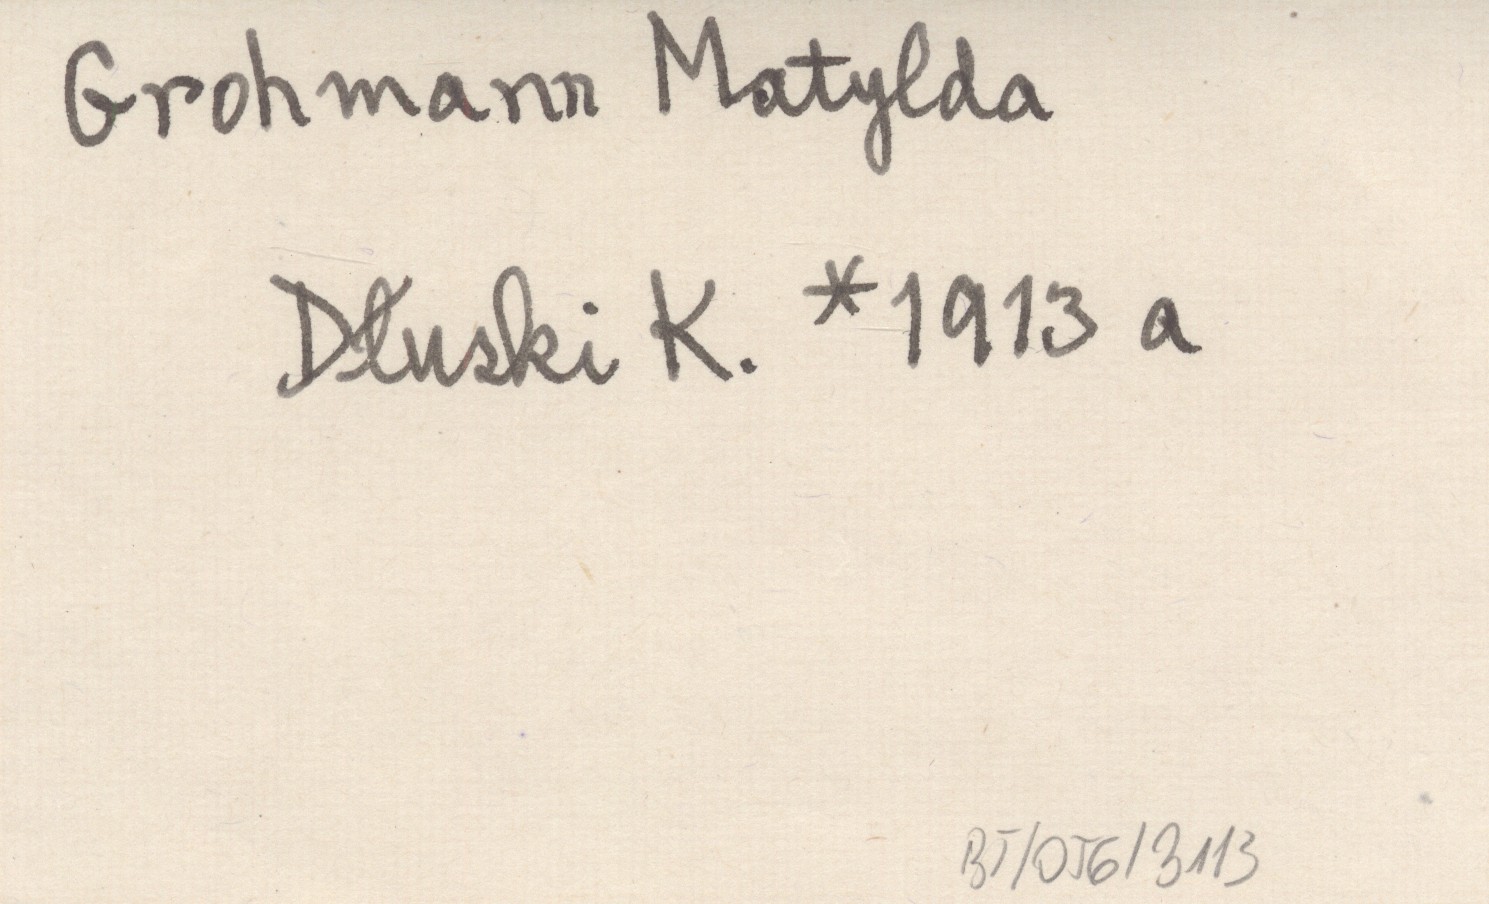 Grohmann Matylda
Dłuski K. *1913 a
BT/OTG/3113